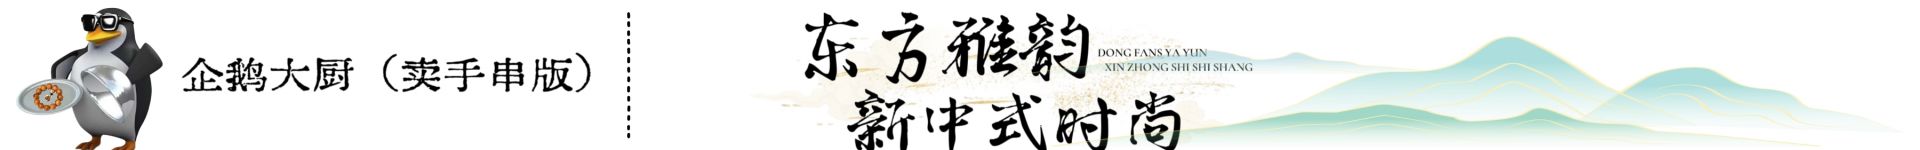 企鹅大厨（卖手串版）
东方雅韵
DONG FANS YA YUN
XIN ZHONG SHI SHI SHANG
新中式时尚